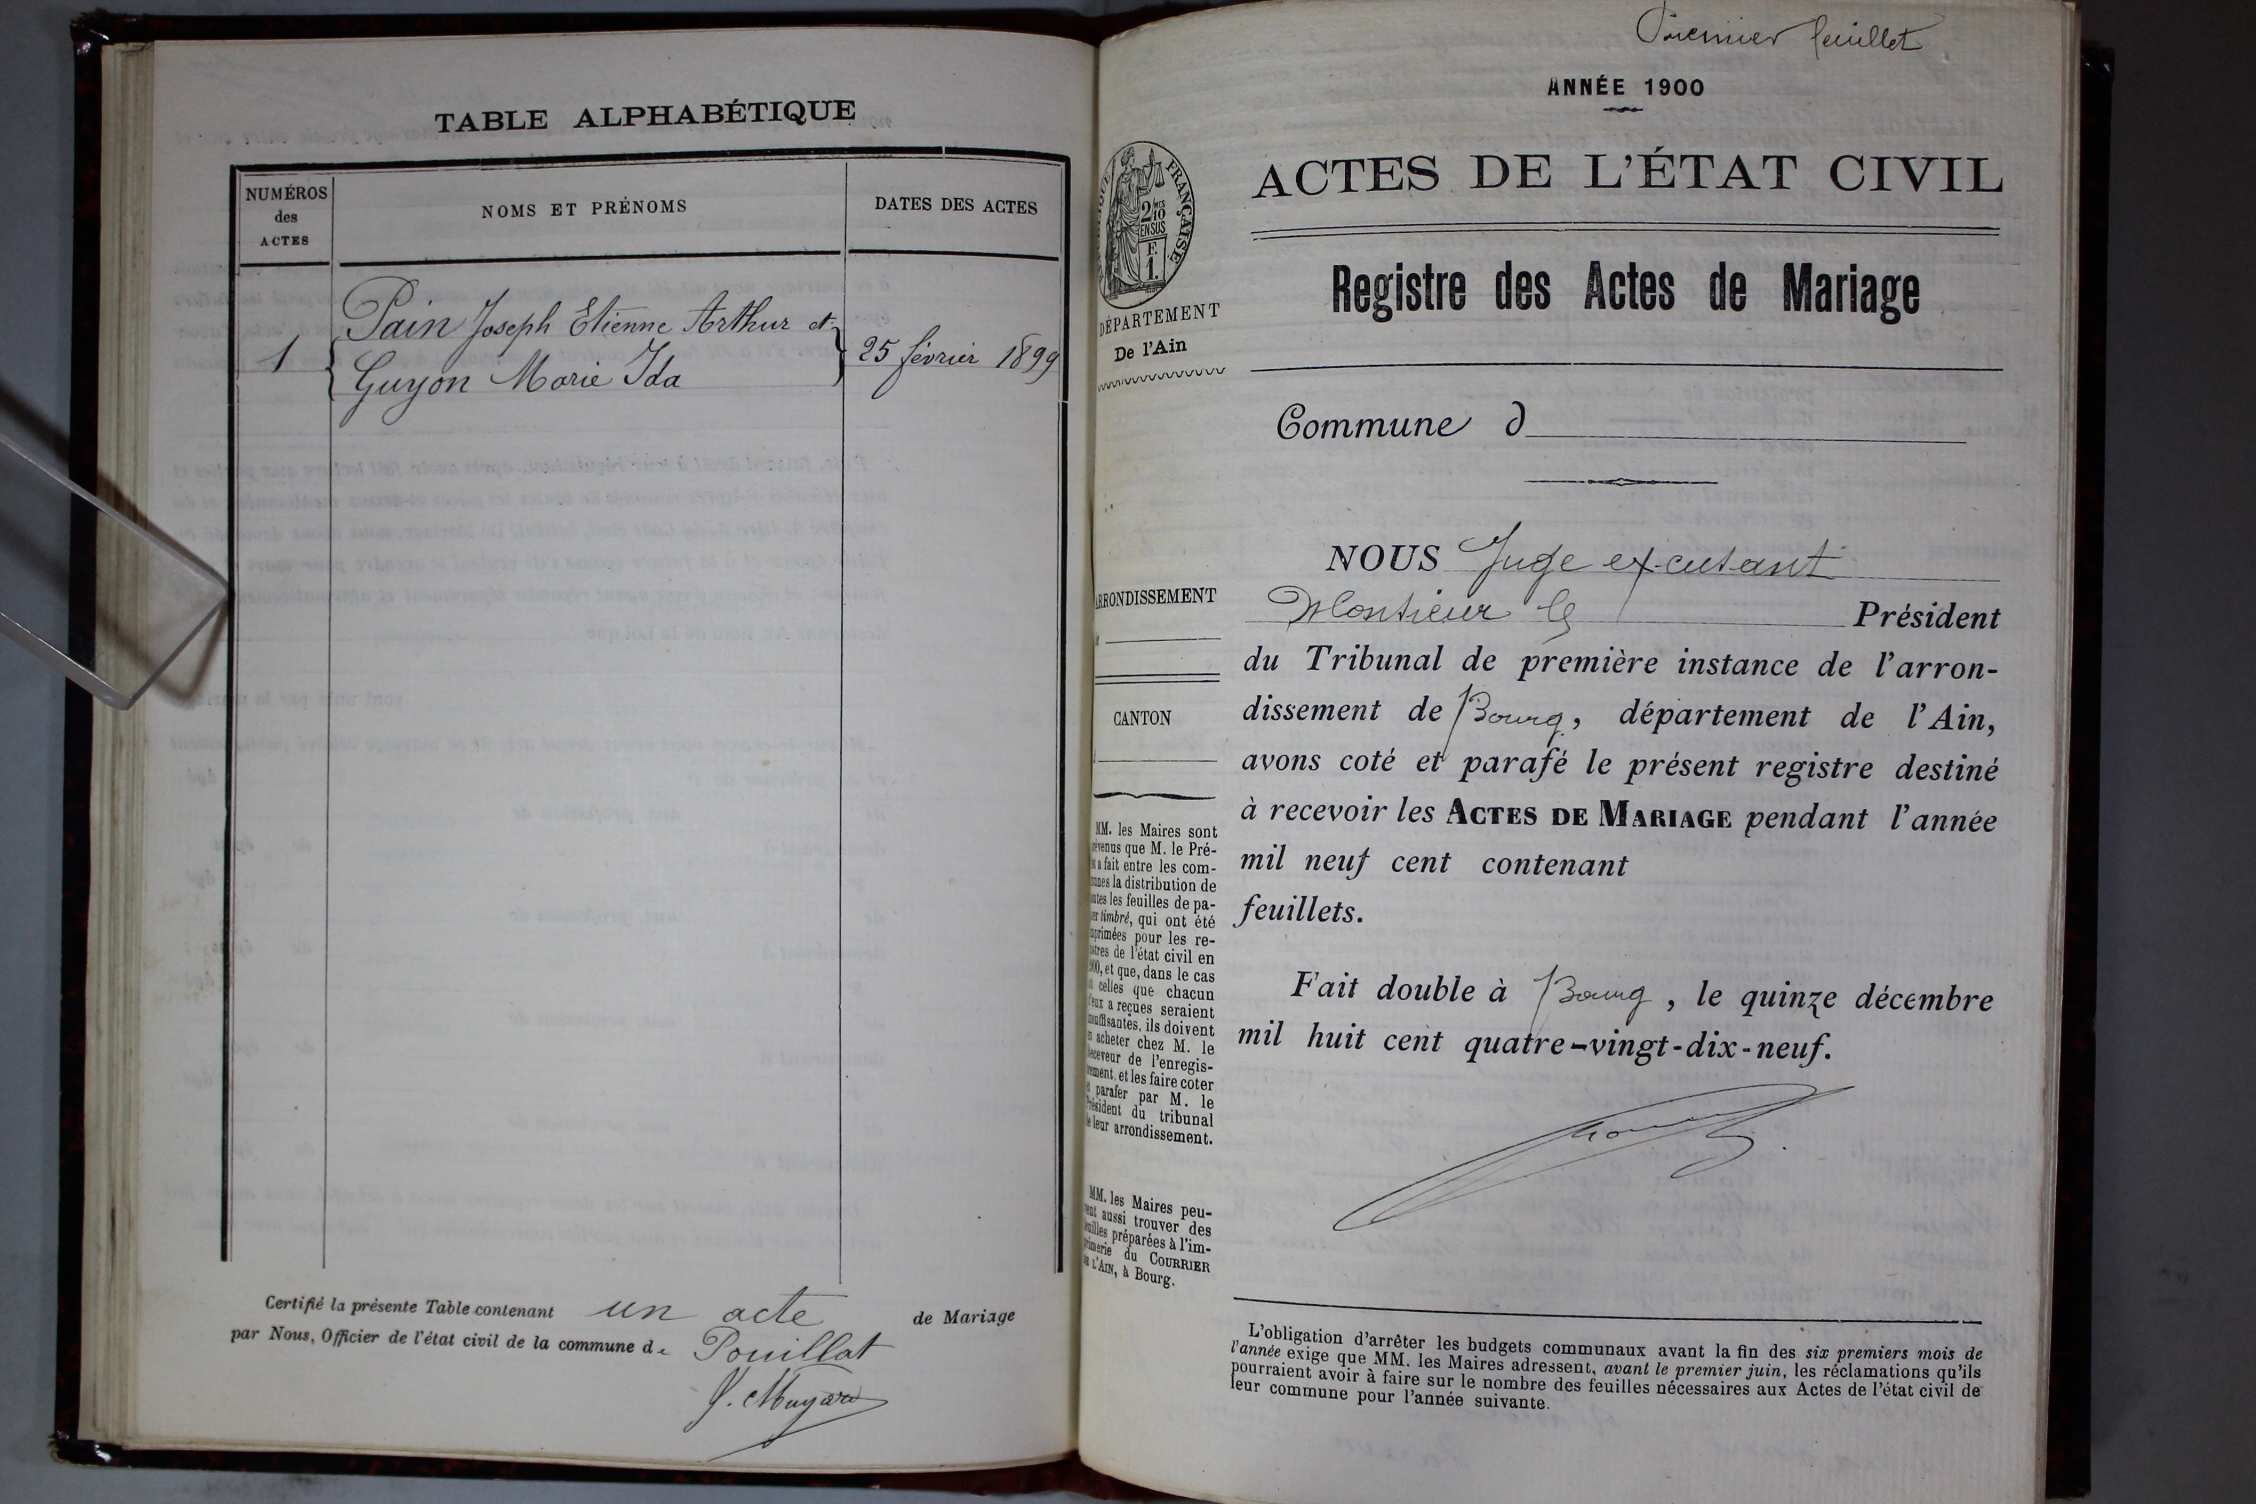 TABLE ALPHABÉTIQUE
NUMÉROS
des
ACTES
NOMS ET PRÉNOMS
DATES DES ACTES
1
Pain Joseph Etienne Arthur et
Guyon Marie Ida
25 février 1899
Certifié la présente Table contenant un acte de Mariage
par Nous, Officier de l'état civil de la commune de Pouillat
Premier feuillet
ANNÉE 1900
ACTES DE L'ÉTAT CIVIL
FRANÇAISE
2 10MES
EN SUS
F.
1.
DÉPARTEMENT
De l'Ain
Registre des Actes de Mariage
Commune d
NOUS Juge
Monsieur le Président
du Tribunal de première instance de l'arron-
dissement de Bourg, département de l'Ain,
avons coté et parafé le présent registre destiné
à recevoir les ACTES DE MARIAGE pendant l'année
mil neuf cent contenant
feuillets.
Fait double à Bourg, le quinze décembre
mil huit cent quatre-vingt-dix-neuf.
ARRONDISSEMENT
CANTON
MM. les Maires sont
que M. le Pré-
a fait entre les com-
la distribution de
les feuilles de pa-
timbré, qui ont été
pour les re-
de l'état civil en
et que, dans le cas
celles que chacun
a reçues seraient
ils doivent
acheter chez M. le
de l'enregis-
et les faire coter
parafer par M. le
du tribunal
leur arrondissement.
MM. les Maires peu-
aussi trouver des
préparées à l'im-
du COURRIER
L'AIN, à Bourg.
L'obligation d'arrêter les budgets communaux avant la fin des six premiers mois de
l'année exige que MM. les Maires adressent, avant le premier juin, les réclamations qu'ils
pourraient avoir à faire sur le nombre des feuilles nécessaires aux Actes de l'état civil de
leur commune pour l'année suivante.